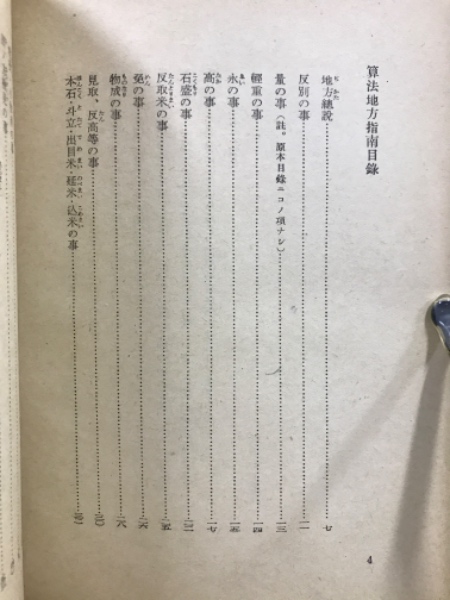 算法地方指南目錄
地方總說……七
反別の事……一一
量の事(註。原本目錄ニコノ項ナシ)……一三
輕重の事……一四
永の事……一五
高の事……一七
石盛の事……
反取米の事……
免の事……
物成の事……
見取、反高等の事……
本石・斗立・出目米・延米・込米の事……
4